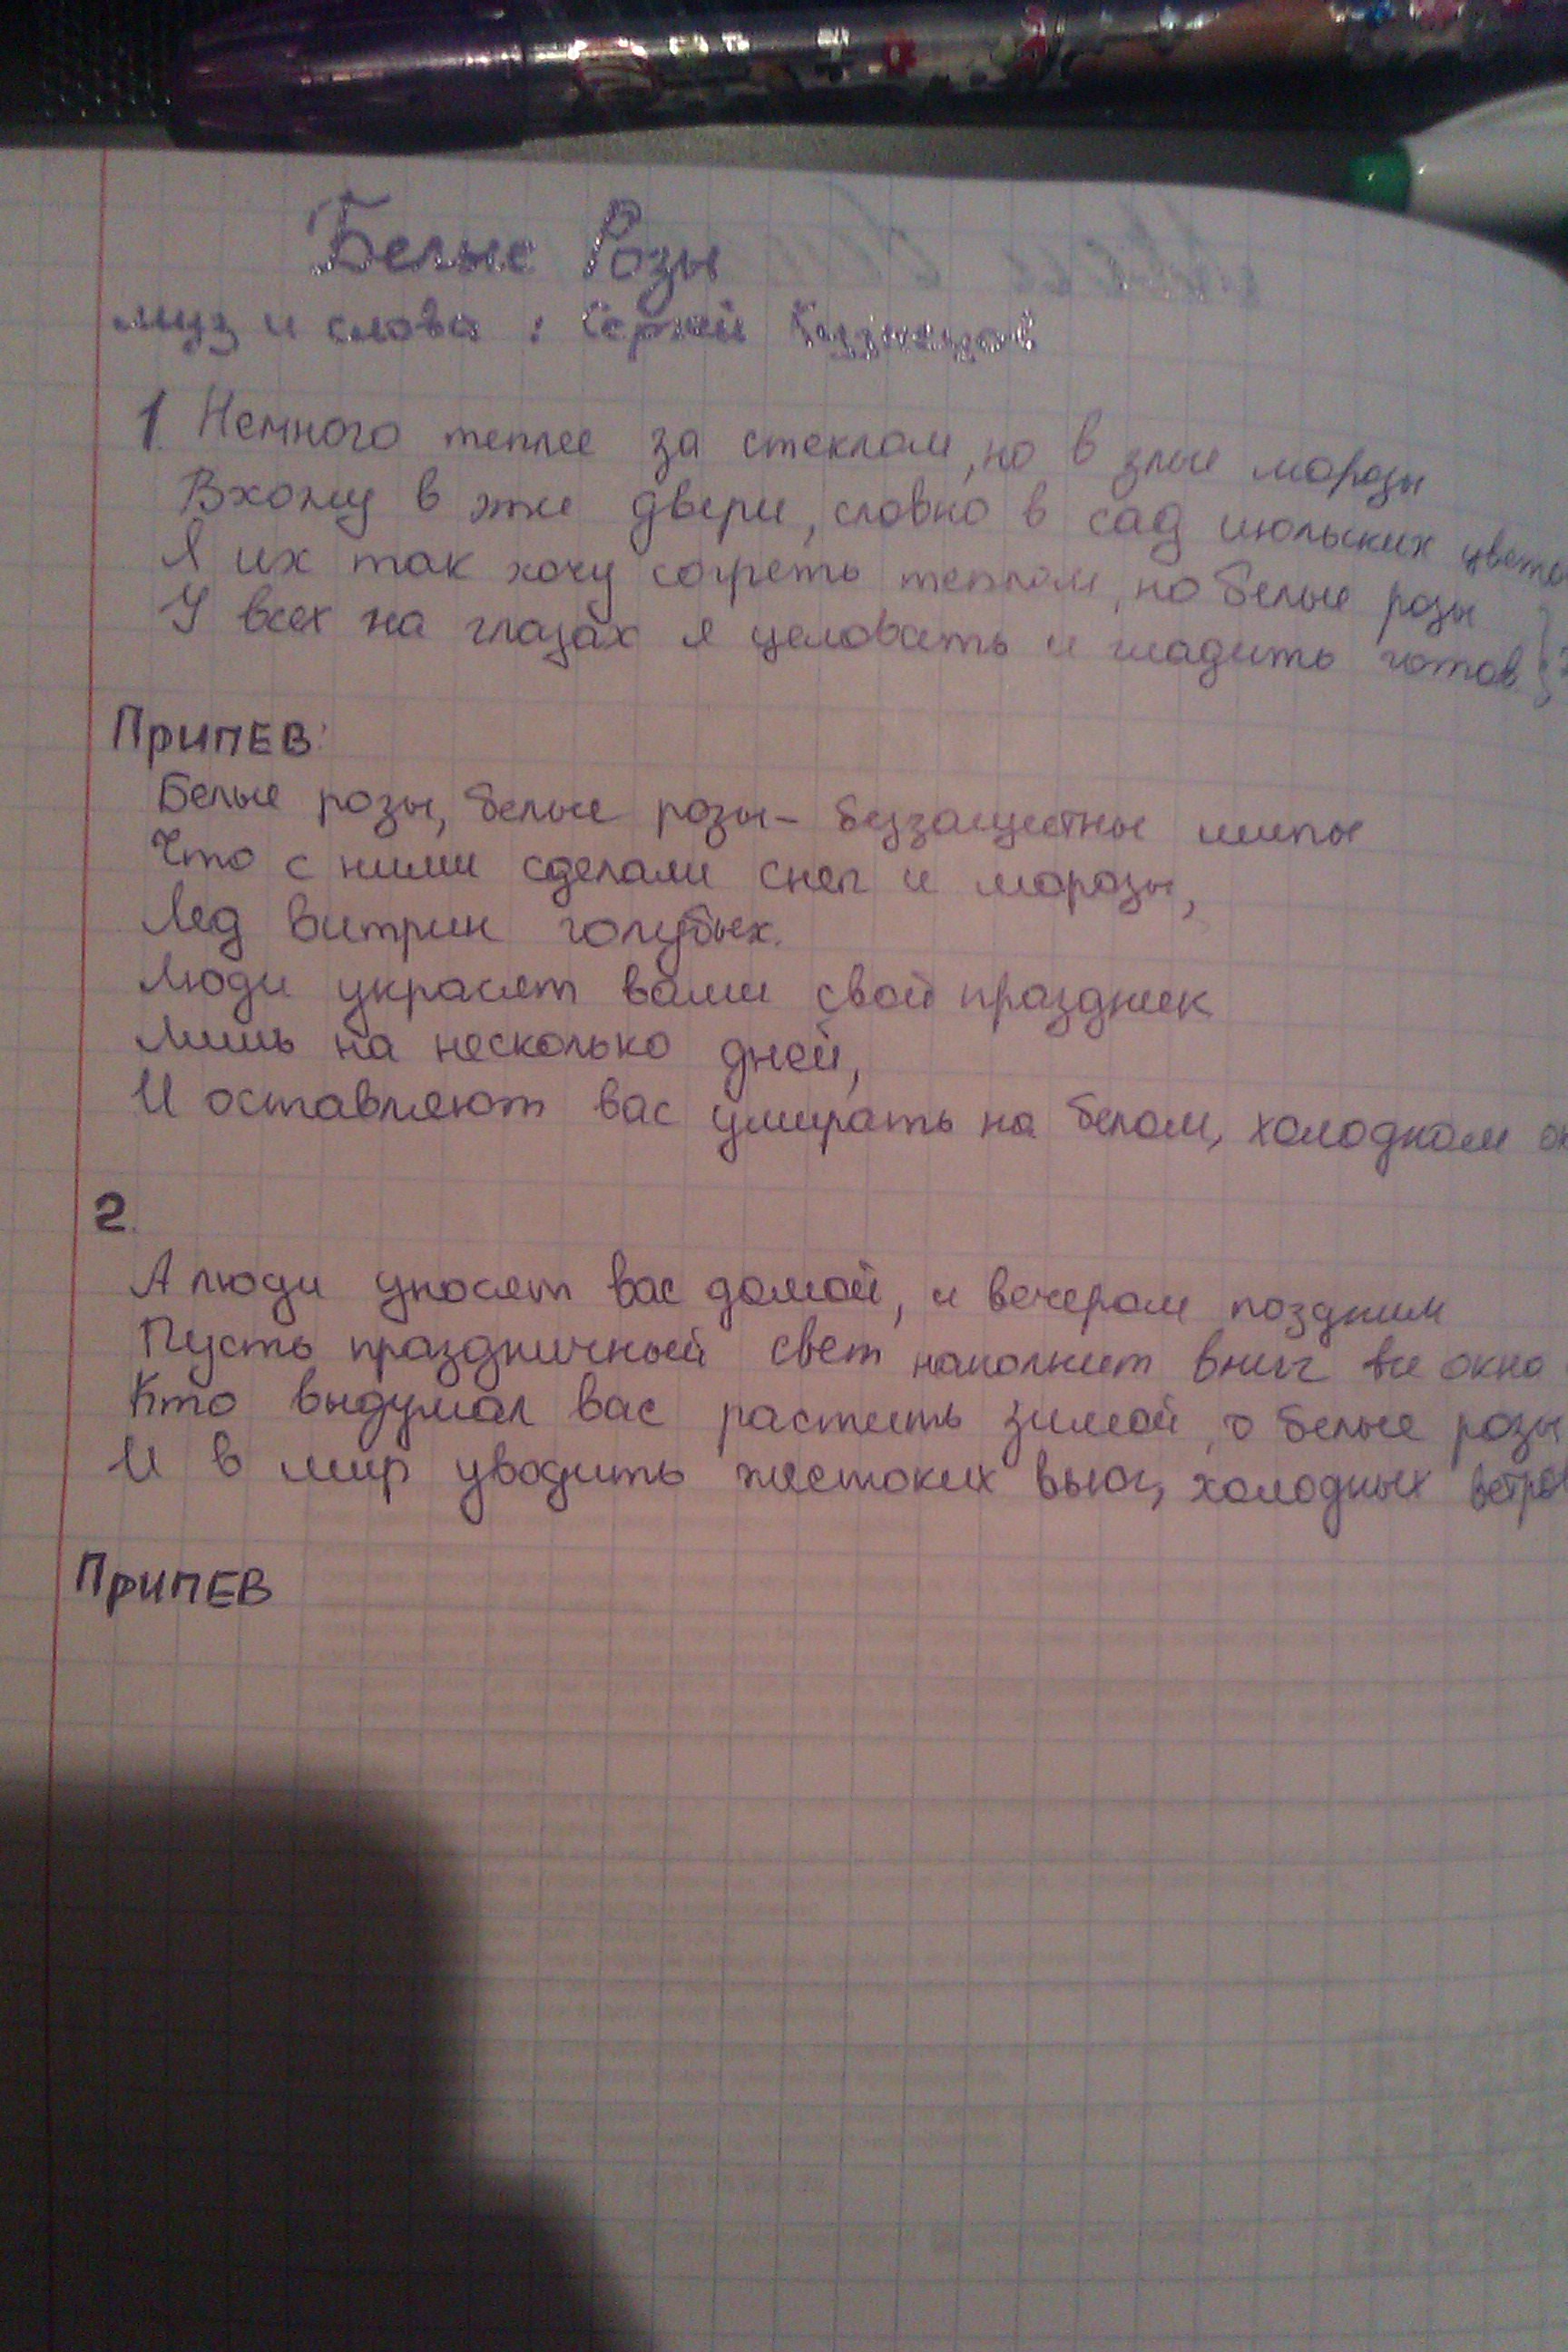 Белые Розы
муз и слова: Сергей Кузнецов
1. Немного теплее за стеклом, но в злые морозы
Вхожу в эти двери, словно в сад июльских цвето
Я их так хочу согреть теплом, но белые розы
У всех на глазах я целовать и гладить готов }
Припев:
Белые розы, белые розы - беззащитны шипы
Что с ними сделали снег и морозы,
Лед витрин голубых.
Люди украсят вами свой праздник
Лишь на несколько дней,
И оставляют вас умирать на белом, холодном ок
2.
А люди уносят вас домой, и вечером поздним
Пусть праздничный свет наполнит вмиг все окна
Кто выдумал вас растить зимой, о белые розы
И в мир уводить жестоких вьюг, холодных ветров
Припев